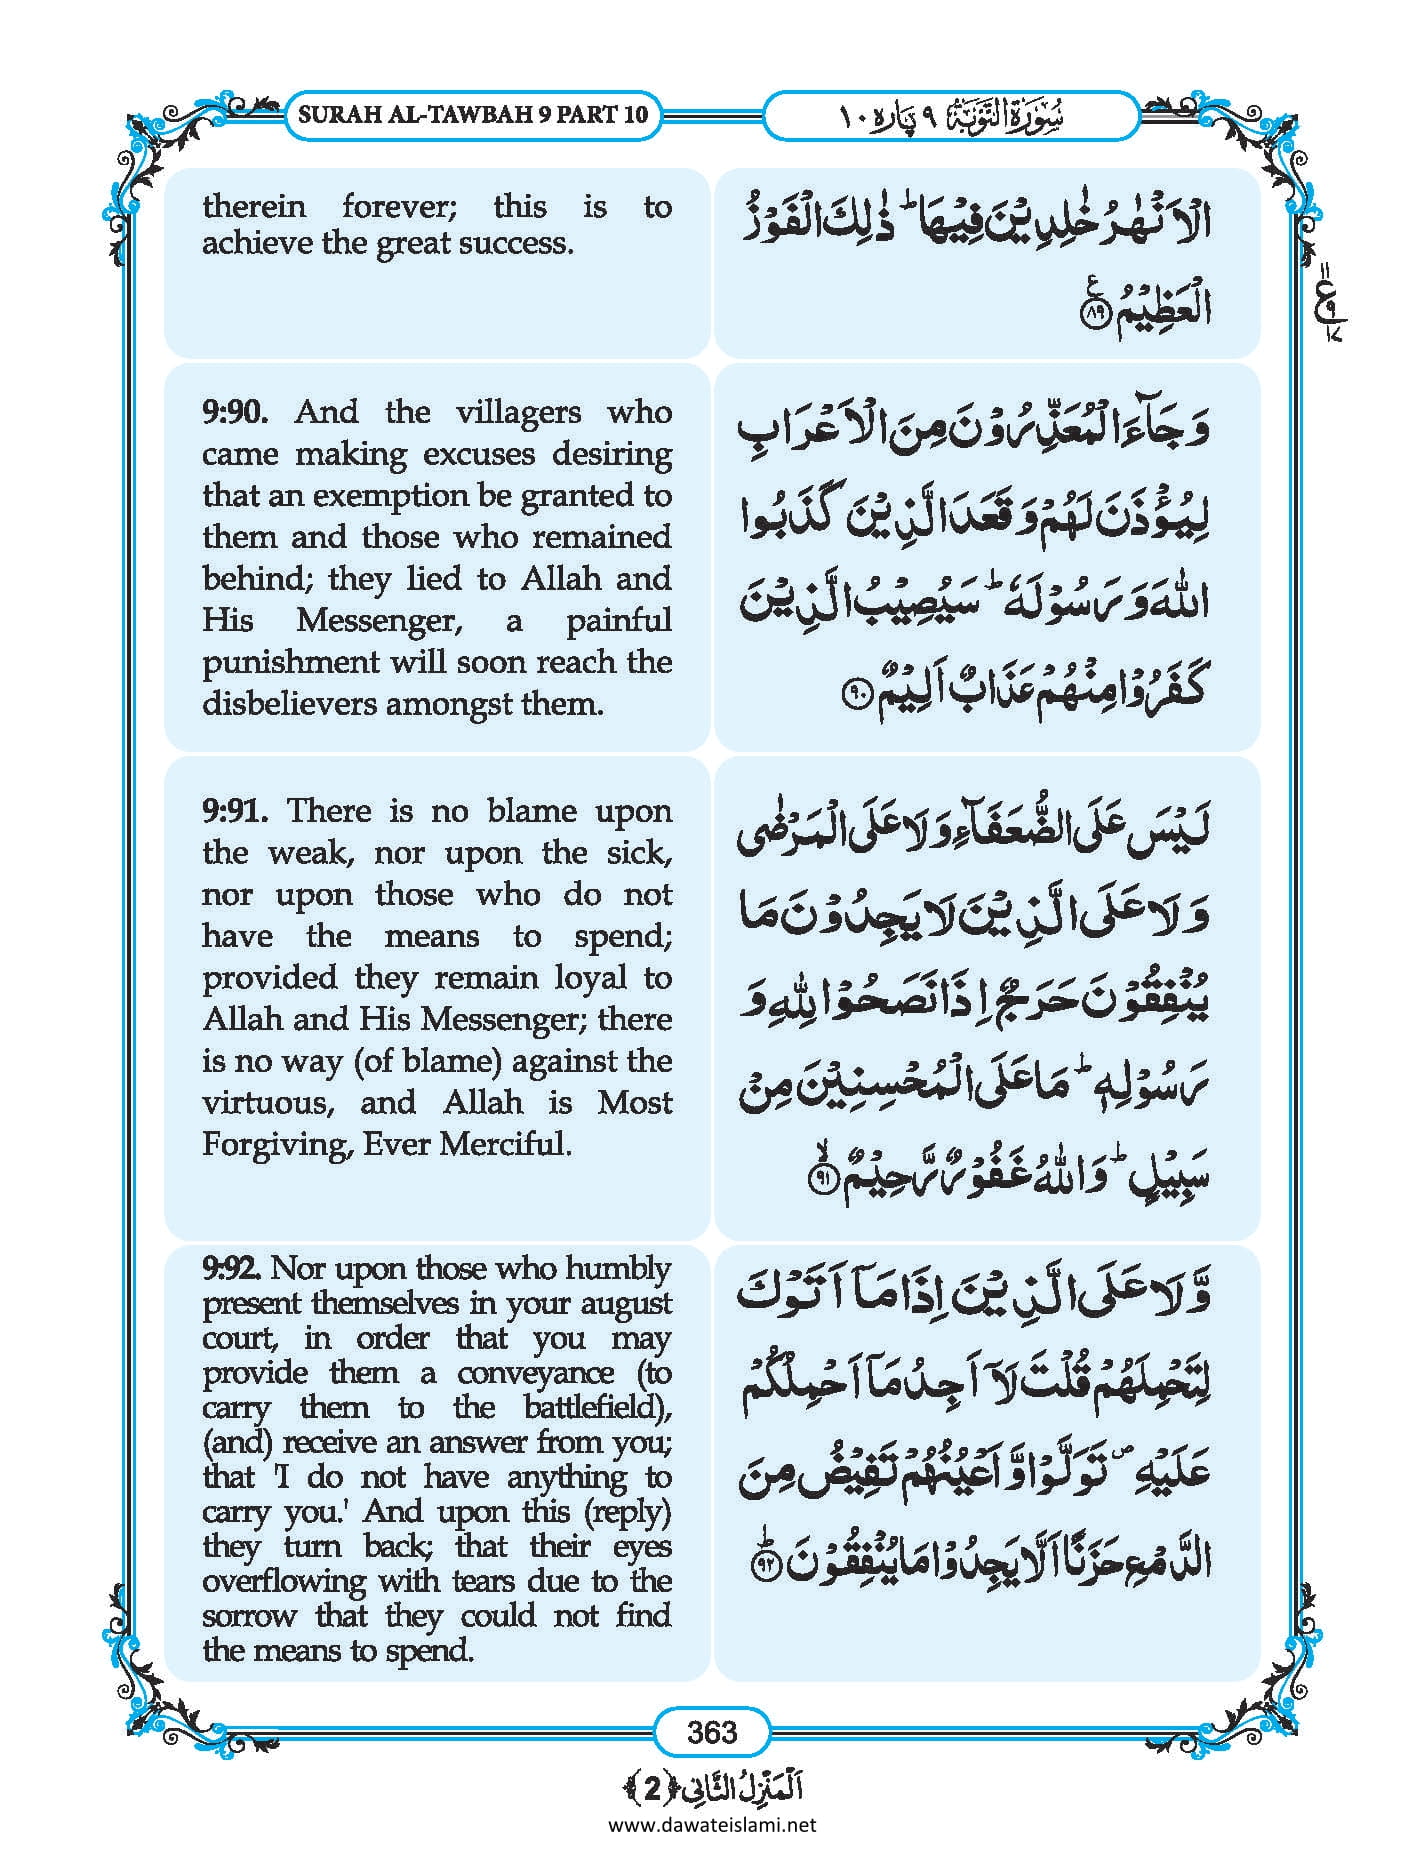 SURAH AL-TAWBAH 9 PART 10
سُوْرَةُ التَّوْبَةِ ٩ پارہ ١٠
therein forever; this is to
achieve the great success.
الْاَنْهٰرُ خٰلِدِيْنَ فِيْهَا ؕ ذٰلِكَ الْفَوْزُ
الْعَظِيْمُ ﴿۸۹﴾ ع
9:90. And the villagers who
came making excuses desiring
that an exemption be granted to
them and those who remained
behind; they lied to Allah and
His Messenger, a painful
punishment will soon reach the
disbelievers amongst them.
وَ جَآءَ الْمُعَذِّرُوْنَ مِنَ الْاَعْرَابِ
لِيُؤْذَنَ لَهُمْ وَ قَعَدَ الَّذِيْنَ كَذَبُوا
اللّٰهَ وَ رَسُوْلَهٗ ؕ سَيُصِيْبُ الَّذِيْنَ
كَفَرُوْا مِنْهُمْ عَذَابٌ اَلِيْمٌ ﴿۹۰﴾
9:91. There is no blame upon
the weak, nor upon the sick,
nor upon those who do not
have the means to spend;
provided they remain loyal to
Allah and His Messenger; there
is no way (of blame) against the
virtuous, and Allah is Most
Forgiving, Ever Merciful.
لَيْسَ عَلَى الضُّعَفَآءِ وَ لَا عَلَى الْمَرْضٰى
وَ لَا عَلَى الَّذِيْنَ لَا يَجِدُوْنَ مَا
يُنْفِقُوْنَ حَرَجٌ اِذَا نَصَحُوْا لِلّٰهِ وَ
رَسُوْلِهٖ ؕ مَا عَلَى الْمُحْسِنِيْنَ مِنْ
سَبِيْلٍ ؕ وَ اللّٰهُ غَفُوْرٌ رَّحِيْمٌ ﴿ۙ۹۱﴾
9:92. Nor upon those who humbly
present themselves in your august
court, in order that you may
provide them a conveyance (to
carry them to the battlefield),
(and) receive an answer from you;
that 'I do not have anything to
carry you.' And upon this (reply)
they turn back; that their eyes
overflowing with tears due to the
sorrow that they could not find
the means to spend.
وَّ لَا عَلَى الَّذِيْنَ اِذَا مَاۤ اَتَوْكَ
لِتَحْمِلَهُمْ قُلْتَ لَاۤ اَجِدُ مَاۤ اَحْمِلُكُمْ
عَلَيْهِ ۪ تَوَلَّوْا وَّ اَعْيُنُهُمْ تَفِيْضُ مِنَ
الدَّمْعِ حَزَنًا اَلَّا يَجِدُوْا مَا يُنْفِقُوْنَ ﴿ؕ۹۲﴾
363
اَلْمَنْزِلُ الثَّانِی ﴿2﴾
www.dawateislami.net